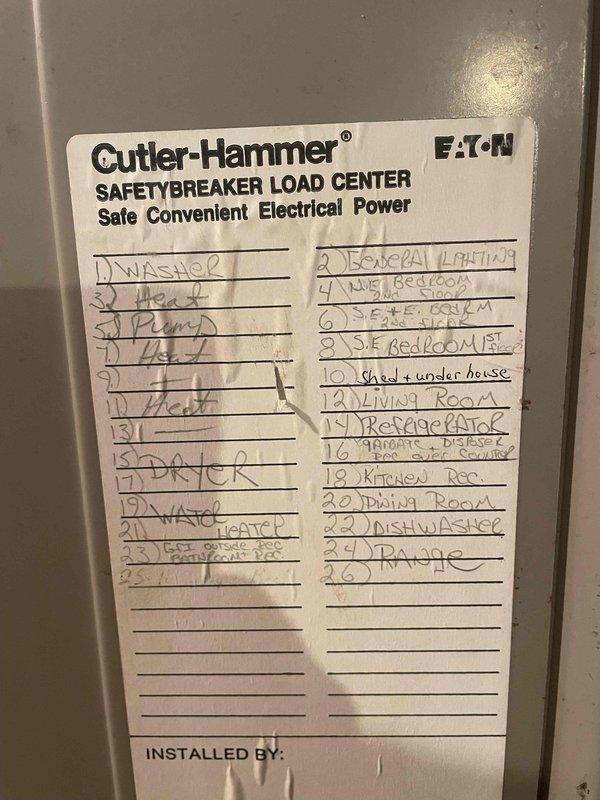 Cutler-Hammer®
EATON
SAFETYBREAKER LOAD CENTER
Safe Convenient Electrical Power
1) WASHER
3) Heat
5) Pump
7) Heat
9) —
11) Heat
13) —
15)
17) DRYER
19) WATER
21) HEATER
23) GFI outside Rec
BATHROOM Rec.
25
2) GENERAL LIGHTING
4 N.E. BEDROOM
2nd FlooR
6) S.E + E. BEDRM
2nd FlooR
8) S.E BEDROOM 1ST
floor
10) Shed + under house
12) LIVING ROOM
14) REFRIGERATOR
16 GARBAGE + DISPOSER
REC over COUNTER
18) KITCHEN REC.
20) DINING ROOM
22) DISHWASHER
24) RANGE
26)
INSTALLED BY: